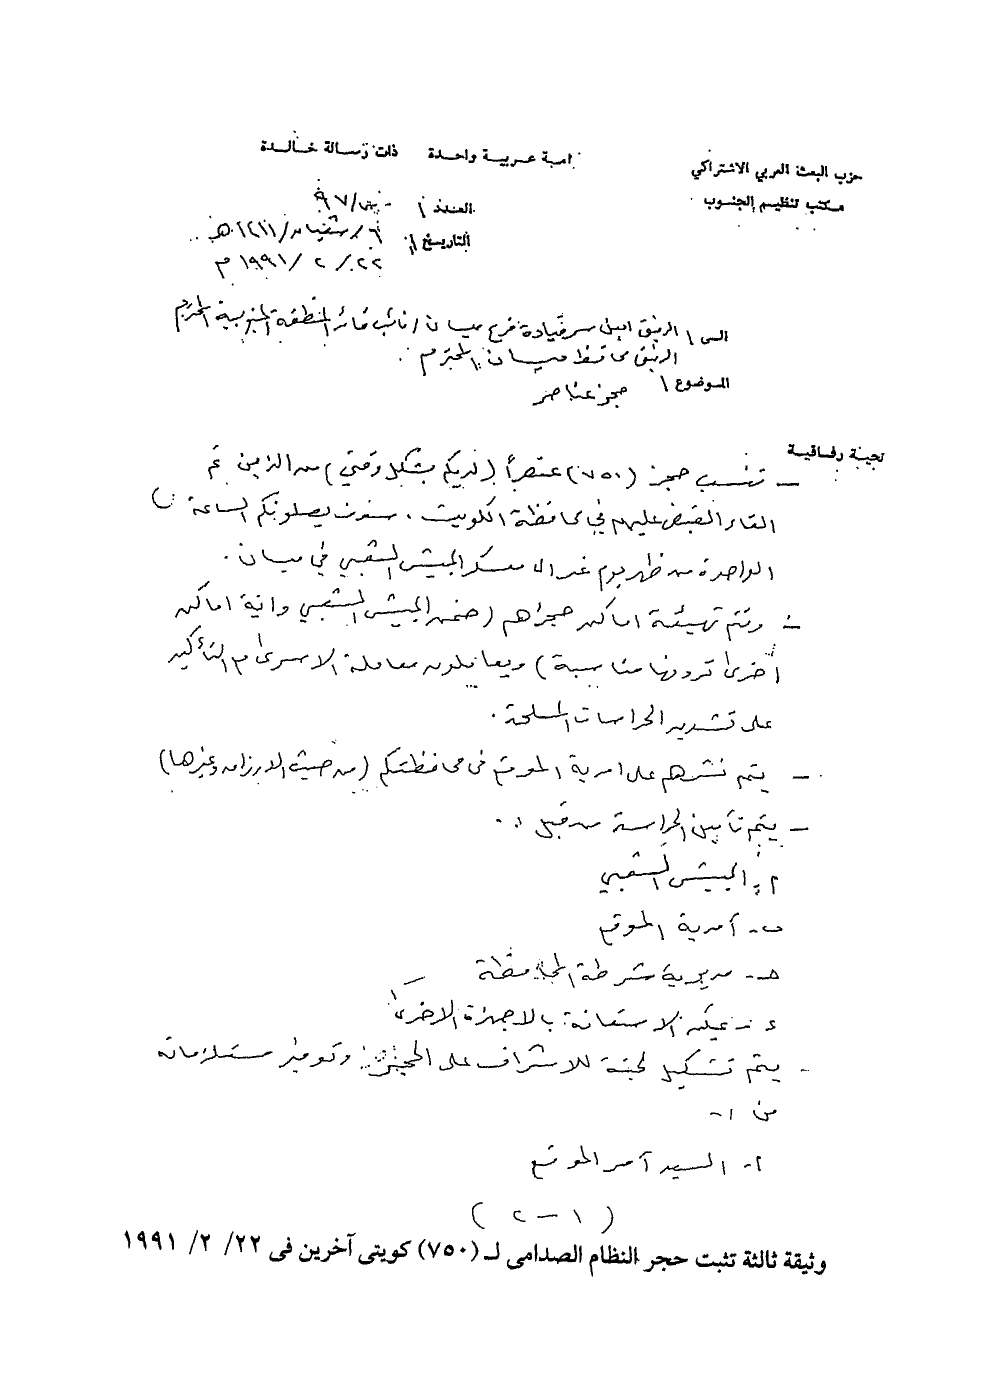 امة عربية واحدة ذات رسالة خالدة
حزب البعث العربي الاشتراكي
مكتب تنظيم الجنوب
العدد / ٩٧/
التاريخ / ٦ / شعبان / ١٤١١ هـ
٢٢ / ٢ / ١٩٩١ م
الى / الرفيق امين سر قيادة فرع ميسان / نائب قائد المنطقة الجنوبية المحترم
الرفيق محافظ ميسان المحترم
الموضوع / حجز عناصر
تحية رفاقية
– تنسب حجز (٧٥٠) عنصراً (لديكم بشكل وقتي) من الذين تم
القاء القبض عليهم في محافظة الكويت . سوف يصلونكم الساعة
الواحدة من ظهر يوم غد الى معسكر الجيش الشعبي في ميسان .
– وتتم تهيئة اماكن حجزهم (ضمن الجيش الشعبي واية اماكن
أخرى ترونها مناسبة) ويعاملون معاملة الاسرى مع التأكيد
على تشديد الحراسات المسلحة .
– يتم نشرهم على امرية الموقع في محافظتكم (من حيث الارزاق وغيرها)
– يتم تأمين الحراسة من قبل :.
أ- الجيش الشعبي
ب- آمرية الموقع
جـ- مديرية شرطة المحافظة
د- يمكن الاستعانة بالاجهزة الاخرى
- يتم تشكيل لجنة للاشراف على الحجز وتوفير مستلزماته
من :-
أ- السيد آمر الموقع
(١ – ٢)
وثيقة ثالثة تثبت حجر النظام الصدامى لـ (٧٥٠) كويتى آخرين فى ٢٢/ ٢/ ١٩٩١